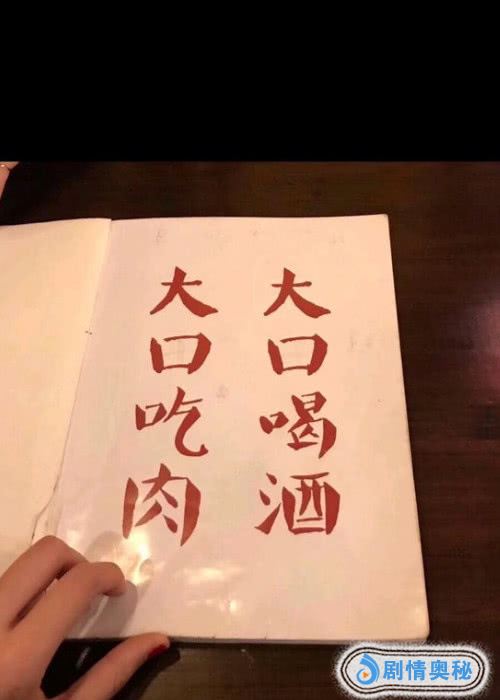 大口喝酒
大口吃肉
剧情奥秘